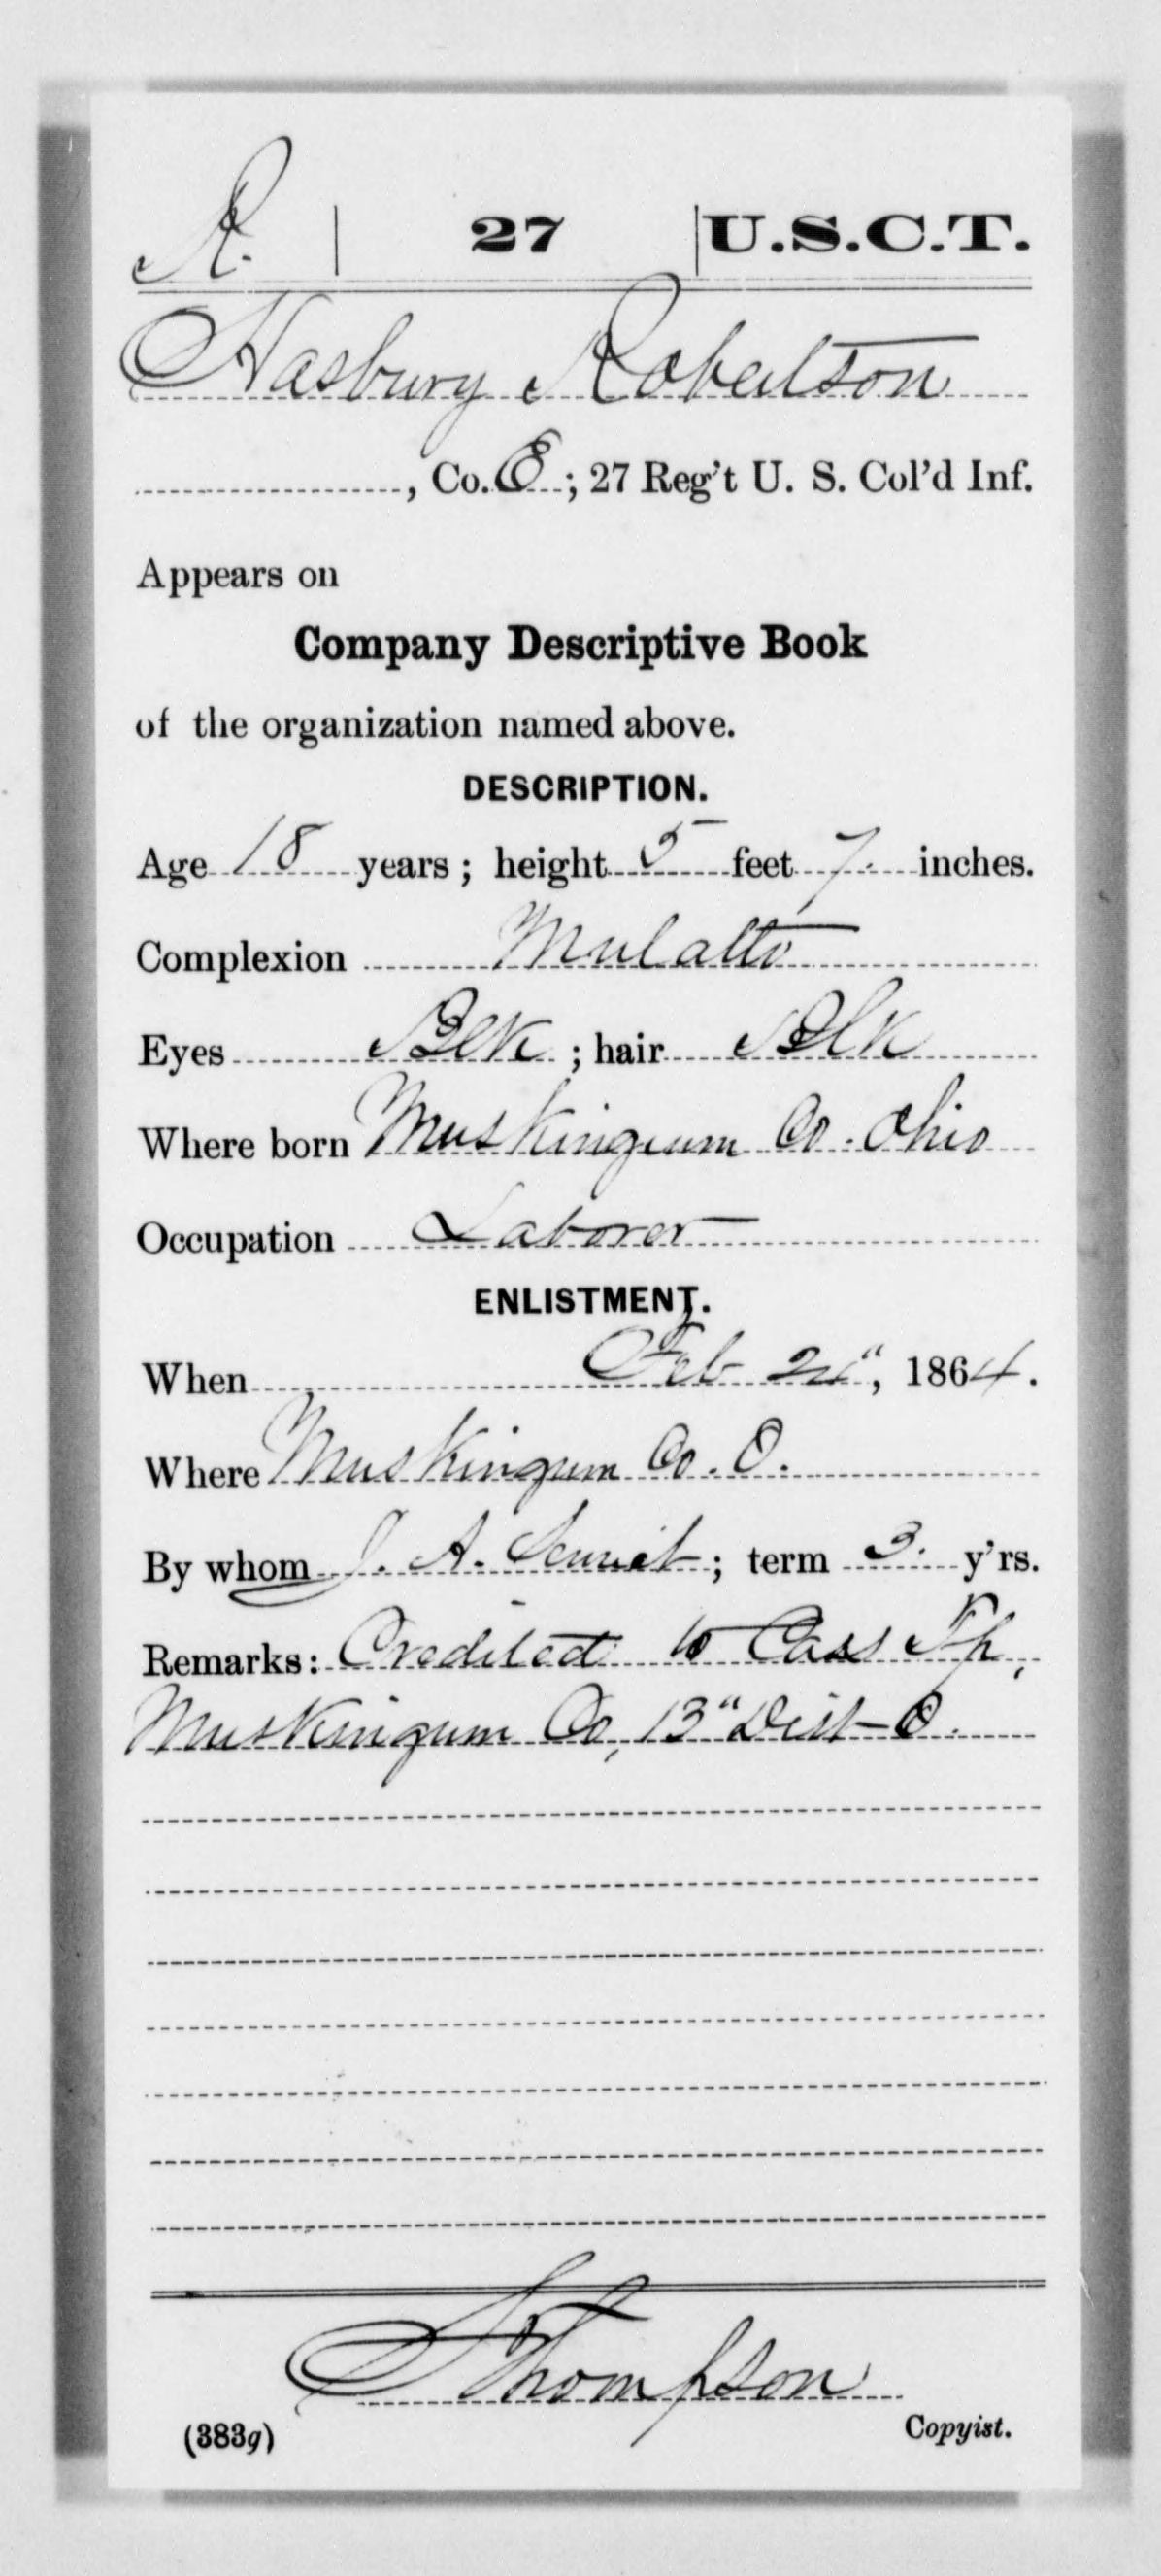 R. | 27 | U.S.C.T.
Hasbury Robertson
, Co. E ; 27 Reg't U. S. Col'd Inf.
Appears on
Company Descriptive Book
of the organization named above.
DESCRIPTION.
Age 18 years ; height 5 feet 7 inches.
Complexion Mulatto
Eyes Blk ; hair Blk
Where born Muskingum Co. Ohio
Occupation Laborer
ENLISTMENT.
When Feb , 1864.
Where Muskingum Co. O.
By whom J. A. ; term 3. y'rs.
Remarks: Credited to Cass Tp,
Muskingum Co, 13" Dist O.
Thompson
Copyist.
(383g)